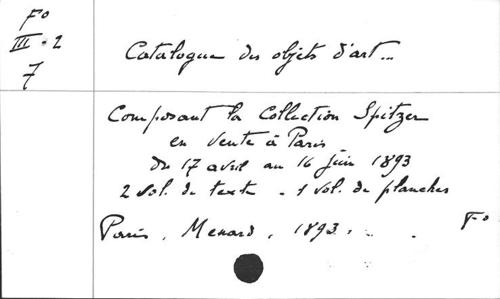 Fº
III. 2
7
Catalogue des objets d'art...
Composant la Collection Spitzer
en vente à Paris
du 17 avril au 16 juin 1893
2 vol. de texte - 1 vol. de planches
Paris, Menard, 1893. Fº